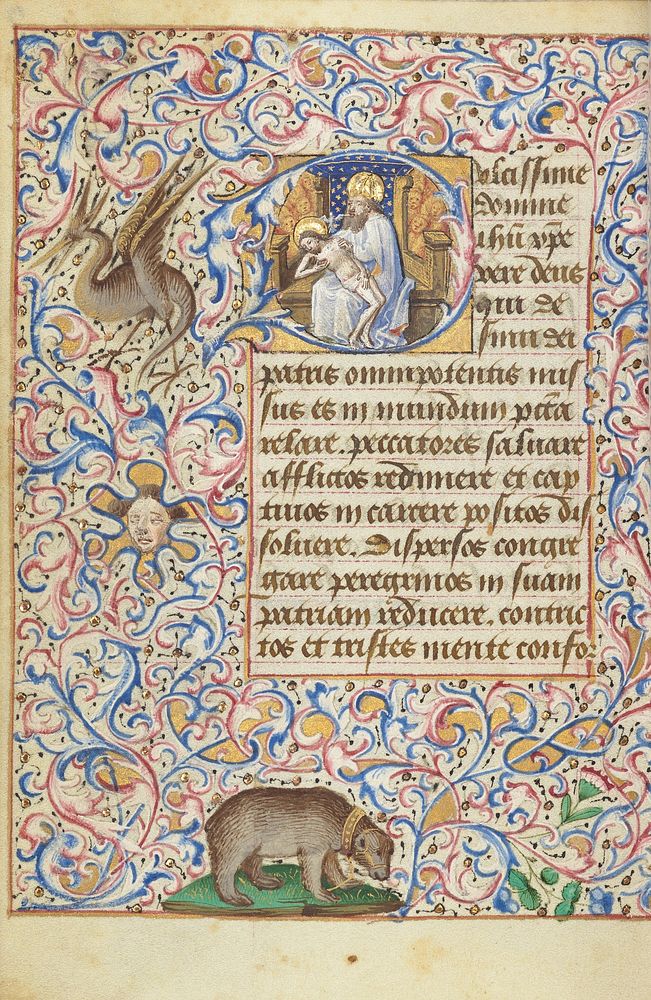 Dulcissime
domine
ihu xpe
vere deus
qui de
sinu dei
patris omnipotentis mis
sus es in mundum pcca
relare. peccatores saluare
afflictos redimere et cap
tiuos in carcere positos dis
soluere. Dispersos congre
gare peregrinos in suam
patriam reducere. contric
tos et tristes mente confor